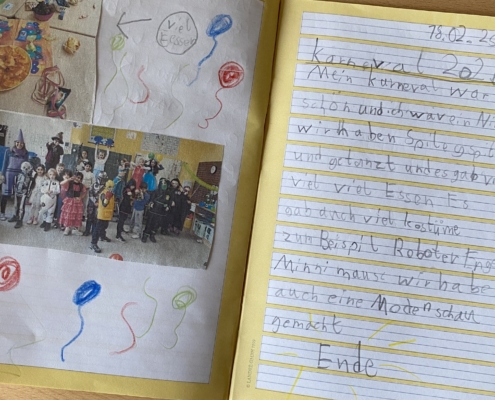 viel
Essen
18.02.20
karneval 202
Mein karneval war
schön und ich war ein Ni
wir haben Spile gspil
und getanzt und es gab v
viel viel Essen Es
gab auch viel kostüme
zum Beispil Roboter Eng
Minni maus wir habe
auch eine Modenschau
gemacht
Ende